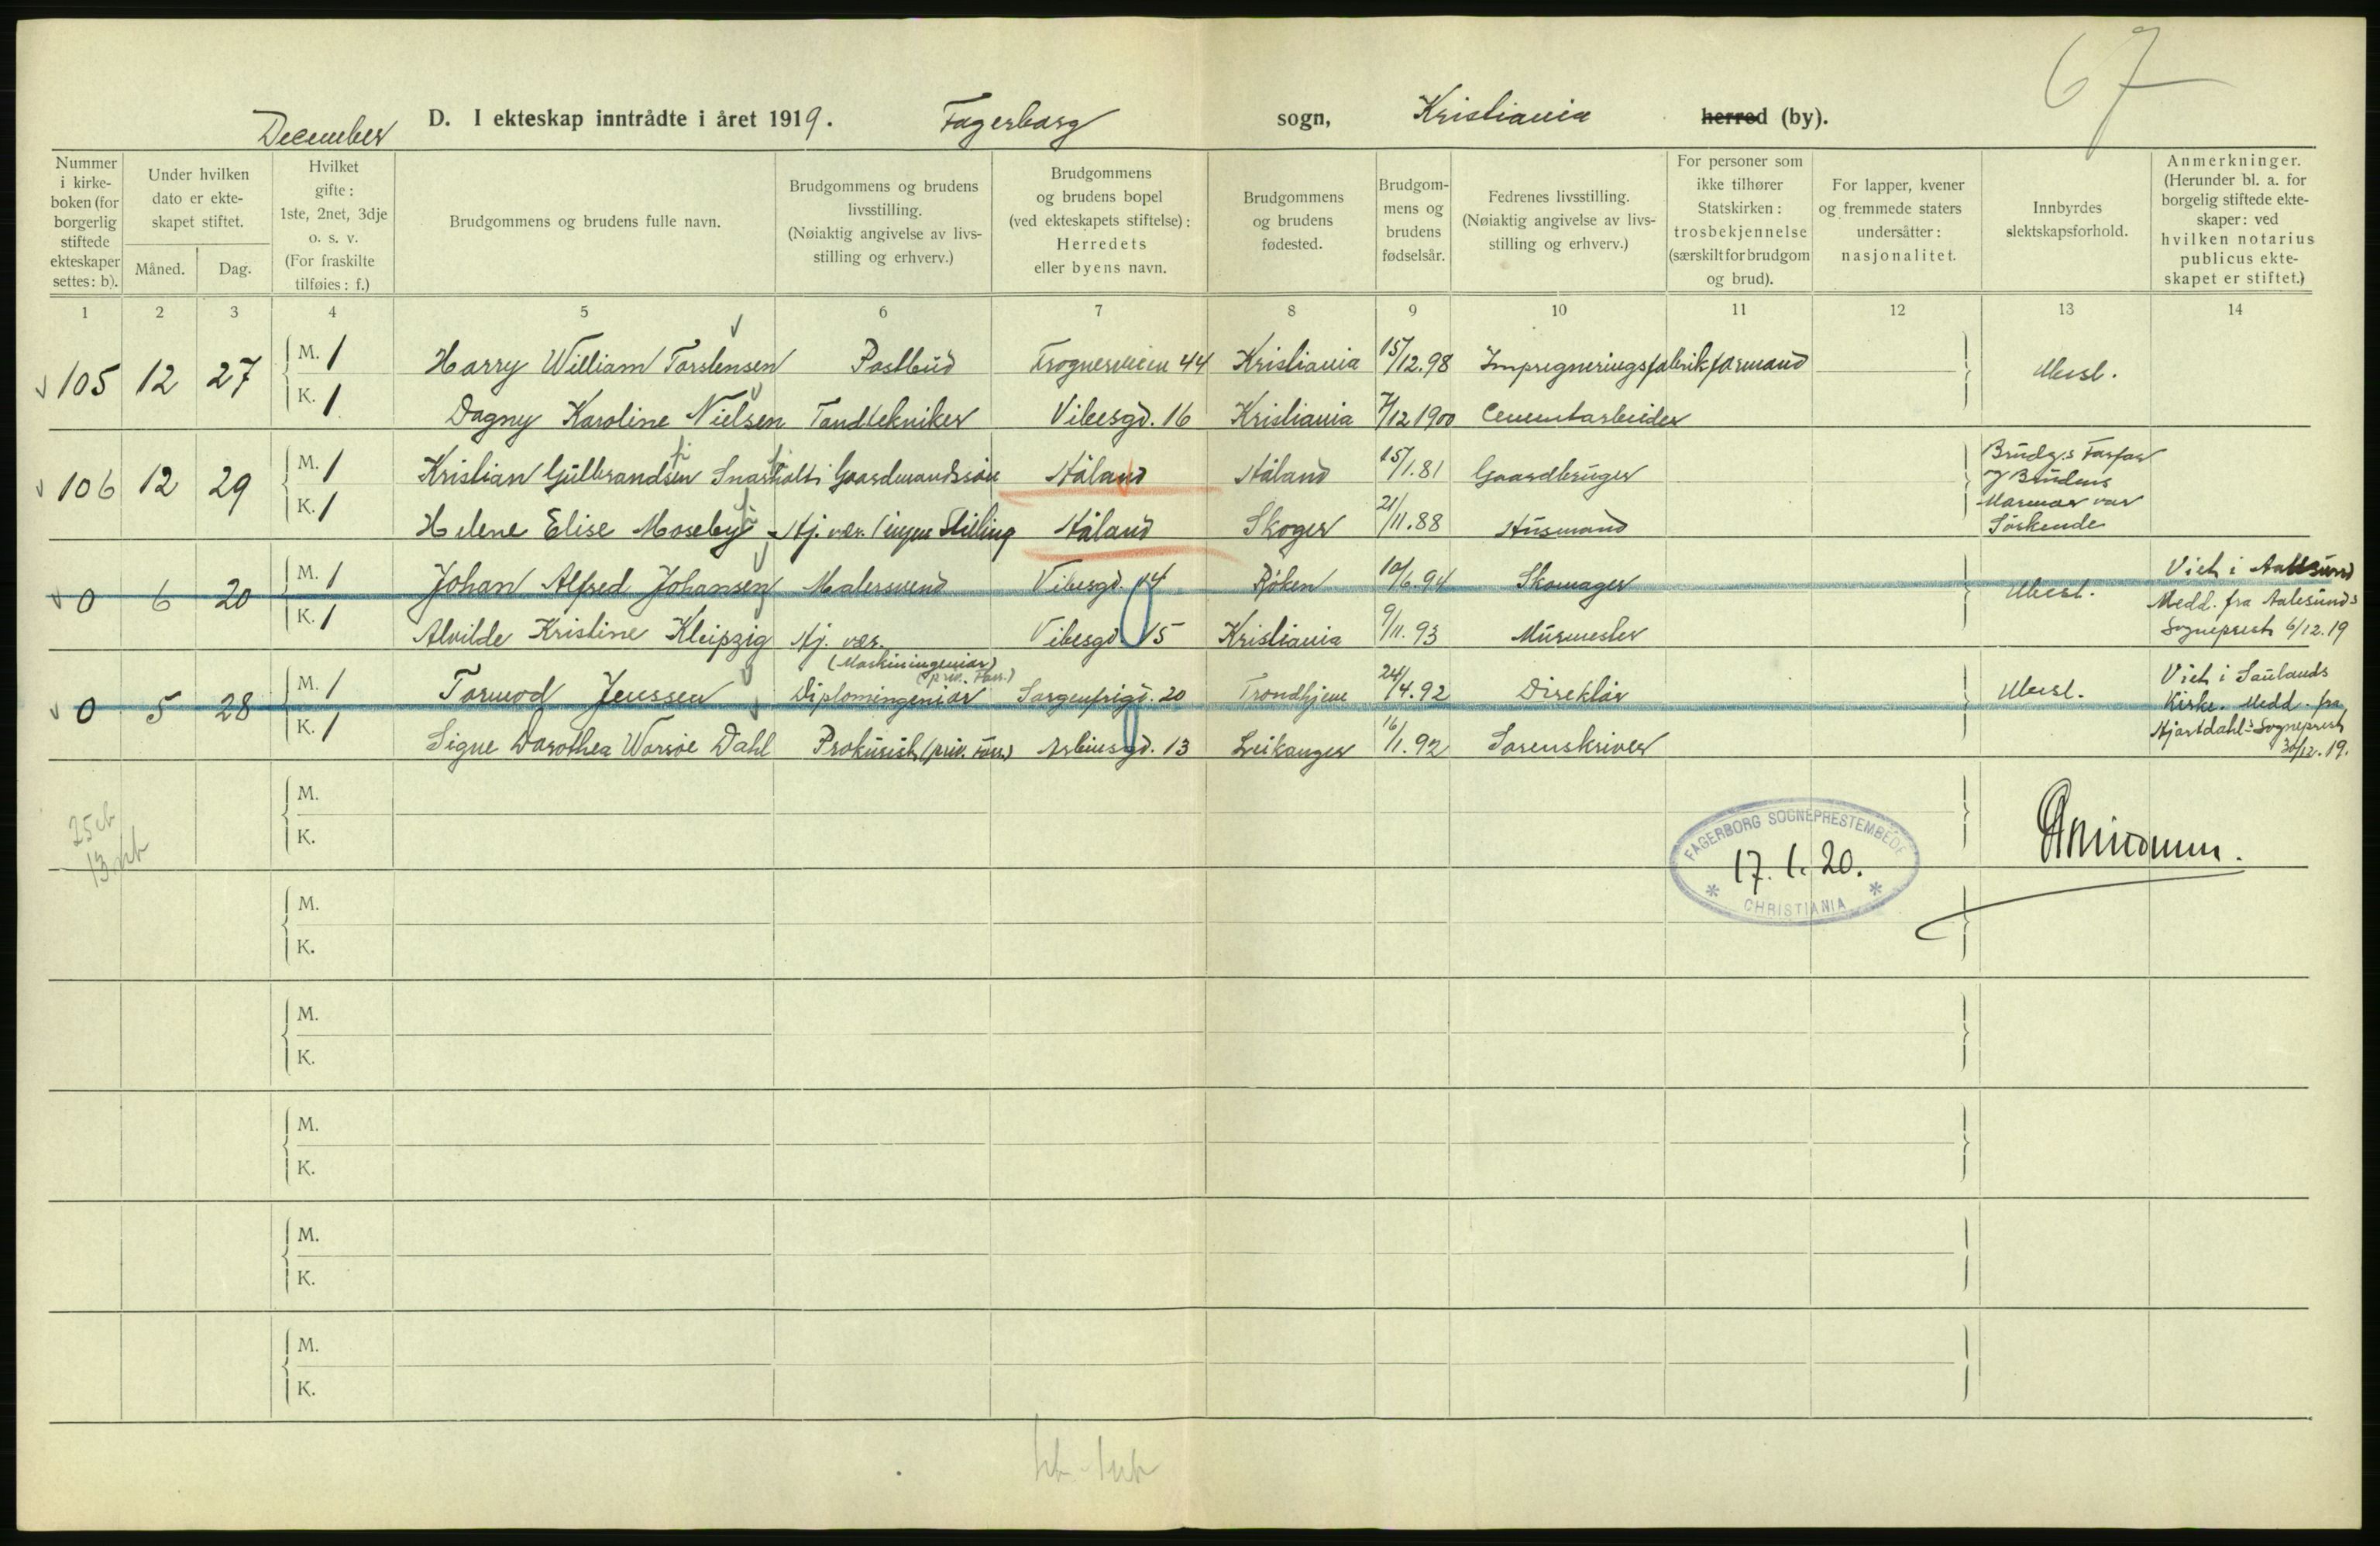 67
December D. I ekteskap inntrådte i året 1919. Fagerborg sogn, Kristiania herred (by).
Nummer i kirkeboken (for borgerlig stiftede ekteskaper settes: b).
Under hvilken dato er ekteskapet stiftet.
Måned. Dag.
Hvilket gifte: 1ste, 2net, 3dje o. s. v. (For fraskilte tilføies: f.)
Brudgommens og brudens fulle navn.
Brudgommens og brudens livsstilling. (Nøiaktig angivelse av livsstilling og erhverv.)
Brudgommens og brudens bopel (ved ekteskapets stiftelse): Herredets eller byens navn.
Brudgommens og brudens fødested.
Brudgommens og brudens fødselsår.
Fedrenes livsstilling. (Nøiaktig angivelse av livsstilling og erhverv.)
For personer som ikke tilhører Statskirken: trosbekjennelse (særskilt for brudgom og brud).
For lapper, kvener og fremmede staters undersåtter: nasjonalitet.
Innbyrdes slektskapsforhold.
Anmerkninger. (Herunder bl. a. for borgelig stiftede ekteskaper: ved hvilken notarius publicus ekteskapet er stiftet.)
1 2 3 4 5 6 7 8 9 10 11 12 13 14
105 12 27 M. 1 Harry William Torstensen Postbud Frognerveien 44 Kristiania 15/12.98 Impregneringsfabrikformand Ubesl.
K. 1 Dagny Karoline Nielsen Tandtekniker Vibesgd. 16 Kristiania 7/12 1900 Cementarbeider
106 12 29 M. 1 Kristian Gulbrandsen Gaardmandssøn Håland Håland 15/1.81 Gaardbruger Brudg.s Farfar
K. 1 Helene Elise Moseby Hj. vær. ingen Stilling Håland Skoger 21/11.88 Husmand Brudens Mormor var Søskende
0 6 20 M. 1 Johan Alfred Johansen Malersvend Vibesgd. 14 Røken 10/6.94 Skomager Ubesl. Viet i Aalesund
K. 1 Alvilde Kristine Kleipzig Hj. vær. Vibesgd. 15 Kristiania 9/11.93 Murmester Medd. fra Aalesunds Sogneprest 6/12.19
(Maskiningeniør)
0 5 28 M. 1 Tormod Jenssen Diplomingeniør Sorgenfrigd. 20 Trondhjem 24/4.92 Direktør Ubesl. Viet i Saulands Kirke. Medd. fra
K. 1 Signe Dorothea Worsøe Dahl Prokurist (priv. Forr.) Arbiensgd. 13 Leikanger 16/1.92 Sorenskriver Hjartdahls Sogneprest 30/12.19.
M.
K.
FAGERBORG SOGNEPRESTEMBEDE
17. 1. 20.
CHRISTIANIA
M.
K.
M.
K.
M.
K.
M.
K.
M.
K.